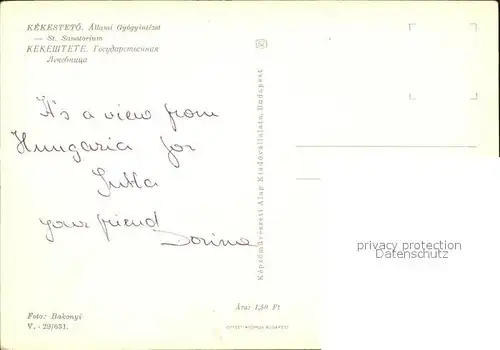 KÉKESTETŐ. Állami Gyógyintézet
— St. Sanatorium
КЕКЕШТЕТЕ. Государственная
Лечебница
It's a view from
Hungaria for
Jutta
your friend
Dorina
Képzőművészeti Alap Kiadóvállalata, Budapest
privacy protection
Datenschutz
Foto: Bakonyi
V. - 29/631.
Ára: 1,50 Ft